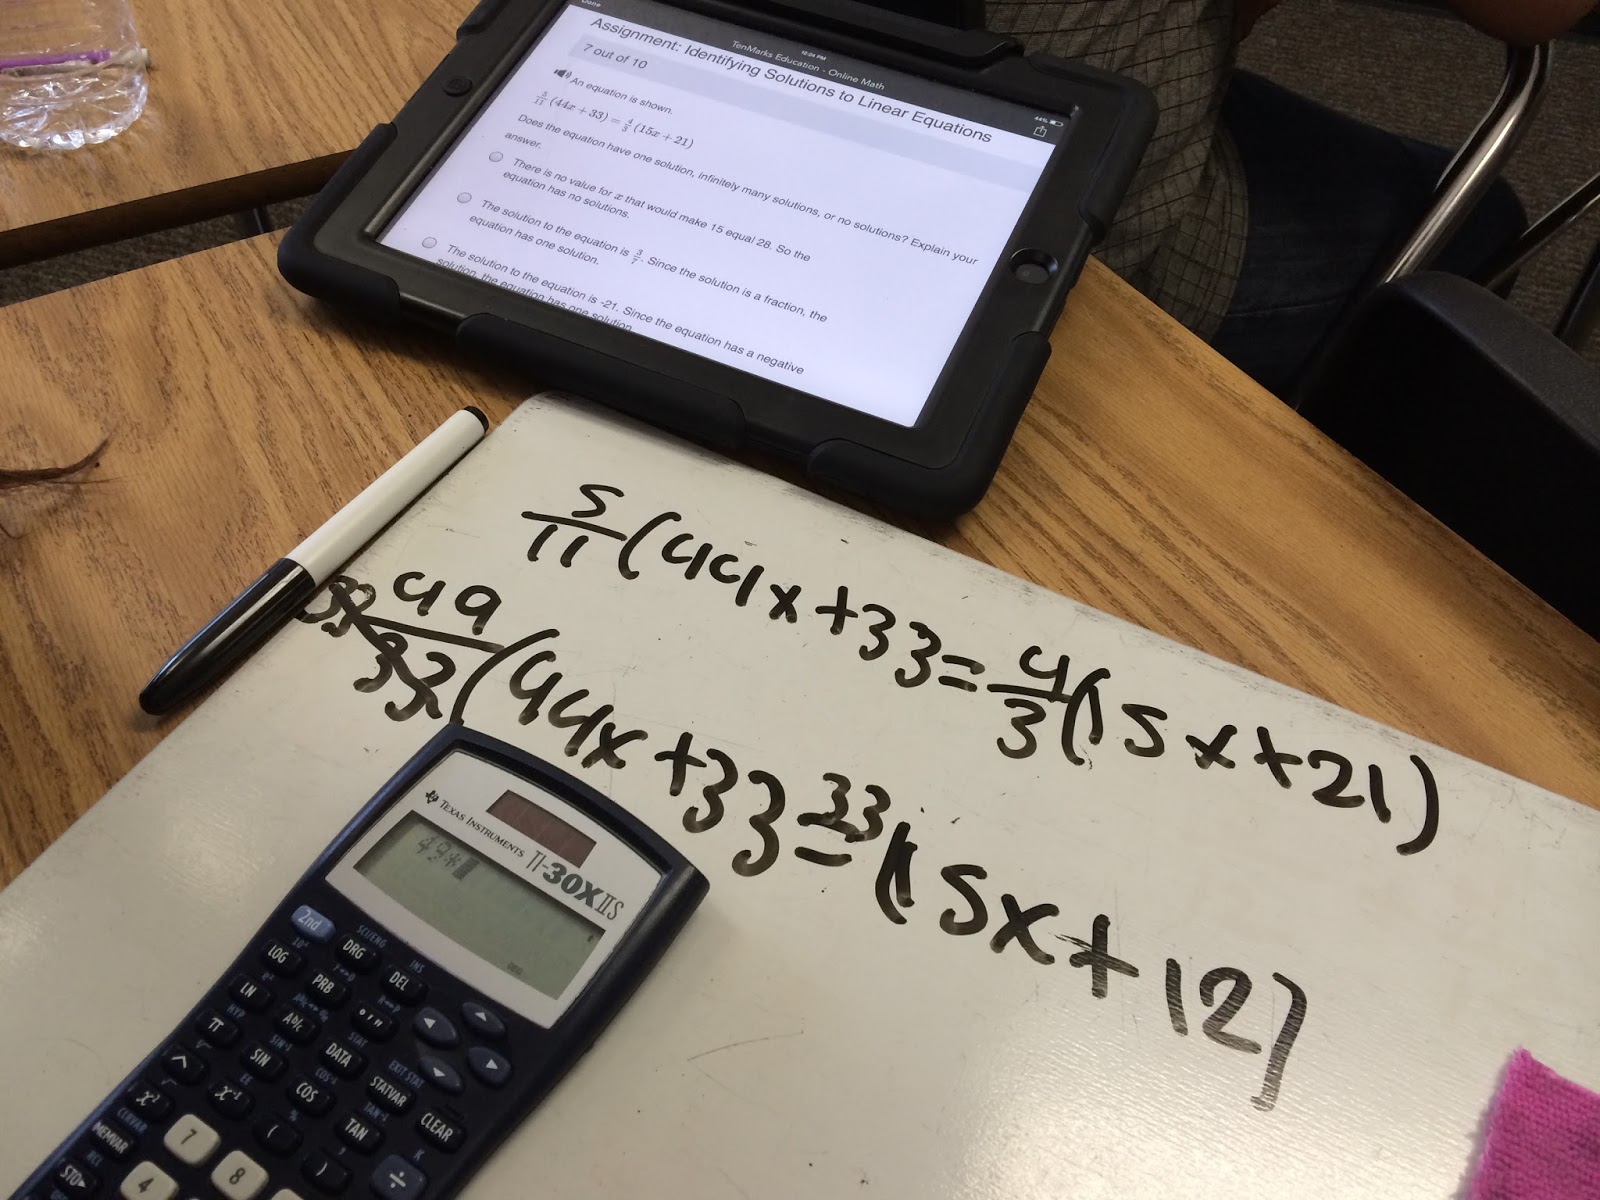 Done
10:04 PM
44%
TenMarks Education - Online Math
Assignment: Identifying Solutions to Linear Equations
7 out of 10
An equation is shown.
5/11 (44x + 33) = 4/3 (15x + 21)
Does the equation have one solution, infinitely many solutions, or no solutions? Explain your
answer.
There is no value for x that would make 15 equal 28. So the
equation has no solutions.
The solution to the equation is 3/7. Since the solution is a fraction, the
equation has one solution.
The solution to the equation is -21. Since the equation has a negative
solution, the equation has one solution.
5/11 (44x + 33 = 4/3 (15x + 21)
49
(44x + 33 = 33 (15x + 12)
TEXAS INSTRUMENTS
TI-30X IIS
49*
DEG
2nd
SCI/ENG
DRG
INS
DEL
LOG
PRB
LN
Ab/c
° ' "
HYP
π
SIN⁻¹
SIN
STAT
DATA
EXIT STAT
STATVAR
^
EE
x⁻¹
COS⁻¹
COS
TAN⁻¹
TAN
CLEAR
x²
%
(
)
K
÷
CLRVAR
MEMVAR
7
8
RCL
STO▶
4